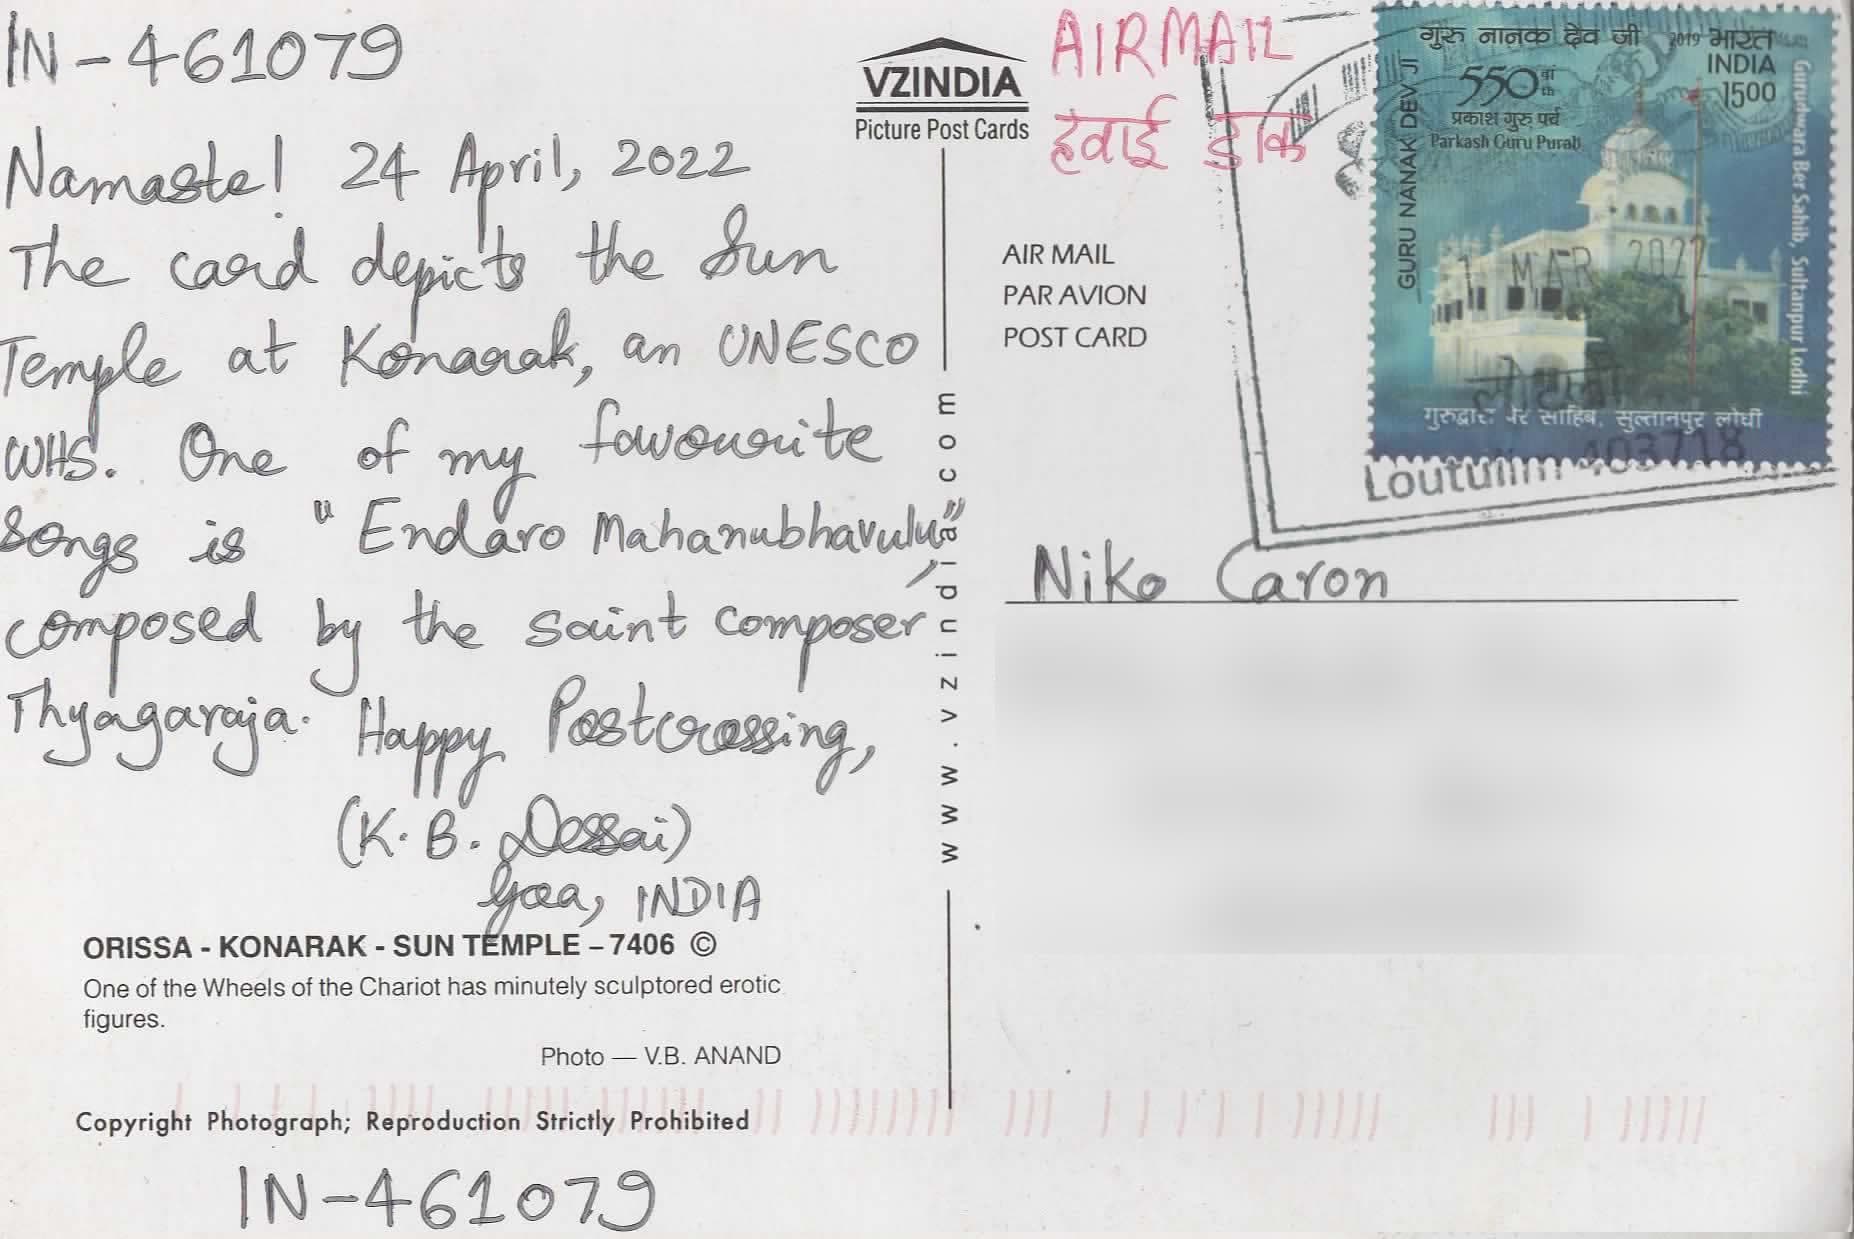 IN-461079
Namaste! 24 April, 2022
The card depicts the Sun
Temple at Konarak, an UNESCO
WHS. One of my favourite
songs is "Endaro Mahanubhavulu",
composed by the saint composer
Thyagaraja. Happy Postcrossing,
(K. B. Dessai)
Goa, INDIA
ORISSA - KONARAK - SUN TEMPLE – 7406 ©
One of the Wheels of the Chariot has minutely sculptored erotic
figures.
Photo — V.B. ANAND
Copyright Photograph; Reproduction Strictly Prohibited
IN-461079
VZINDIA
Picture Post Cards
www.vzindia.com
AIRMAIL
हवाई डाक
AIR MAIL
PAR AVION
POST CARD
गुरु नानक देव जी 2019 भारत
INDIA
1500
550वां
th
प्रकाश गुरु पर्व
Parkash Guru Purab
GURU NANAK DEV JI
Gurudwara Ber Sahib, Sultanpur Lodhi
गुरुद्वारा बेर साहिब, सुल्तानपुर लोधी
1 MAR 2022
Loutulim 403718
Niko Caron